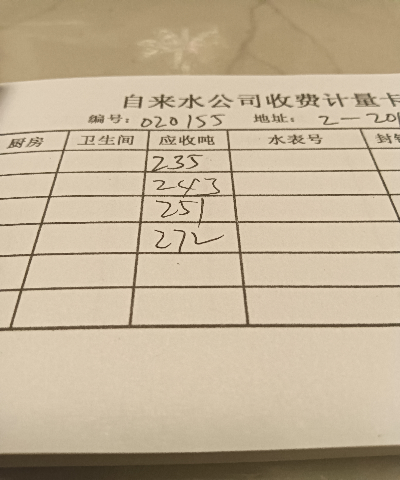 自来水公司收费计量卡
编号: 020155 地址: 2-20
厨房 卫生间 应收吨 水表号
235
243
251
272